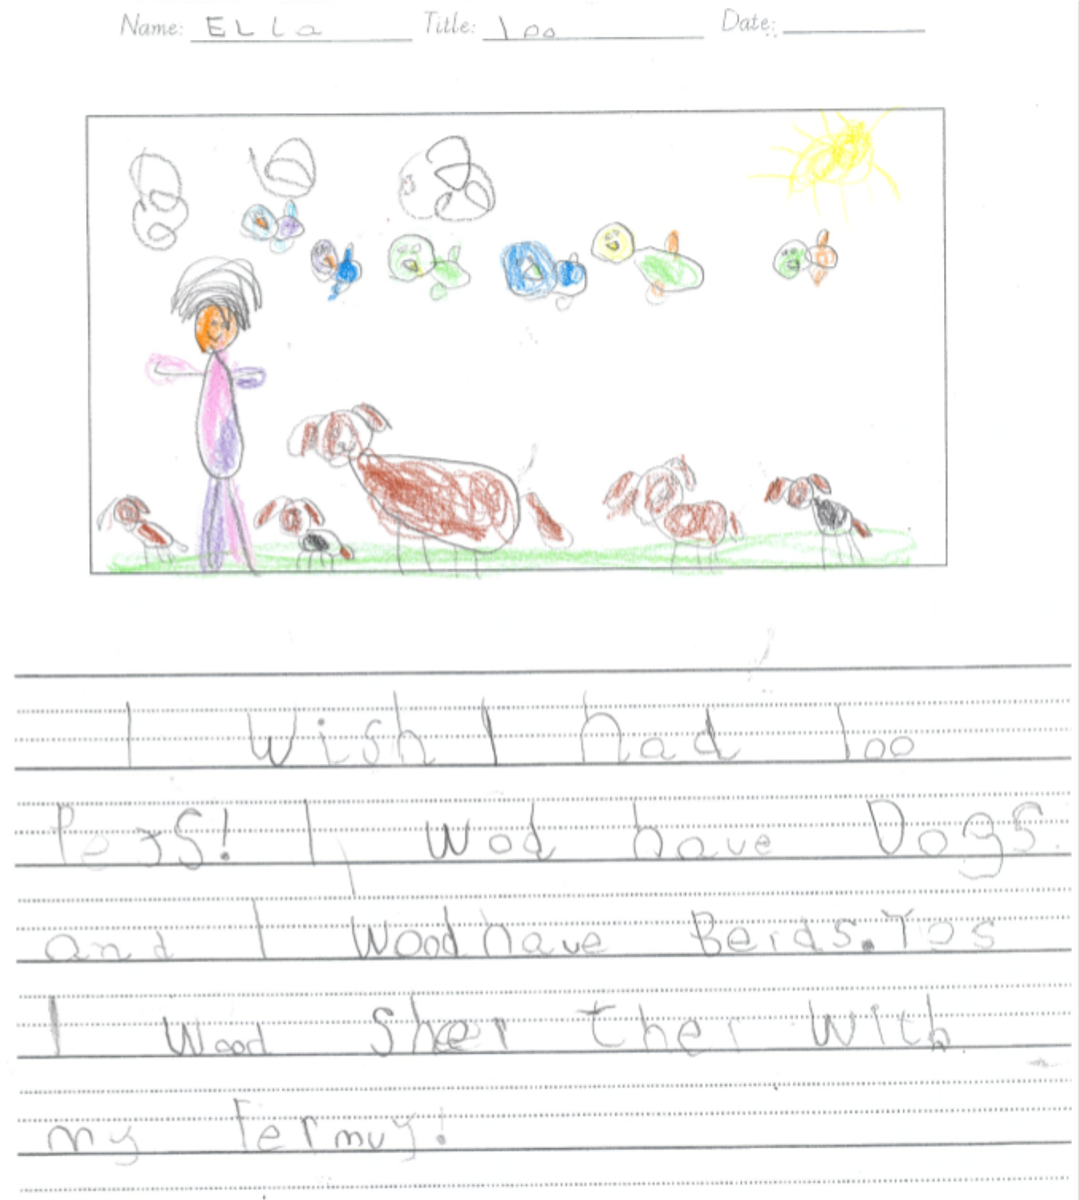 Name: ELLa Title: 100 Date:
I Wish I had 100
Pets! I Wod have Dogs.
and I Wood have Beids. Yos
I Wood Sheer ther With
my fermuy!